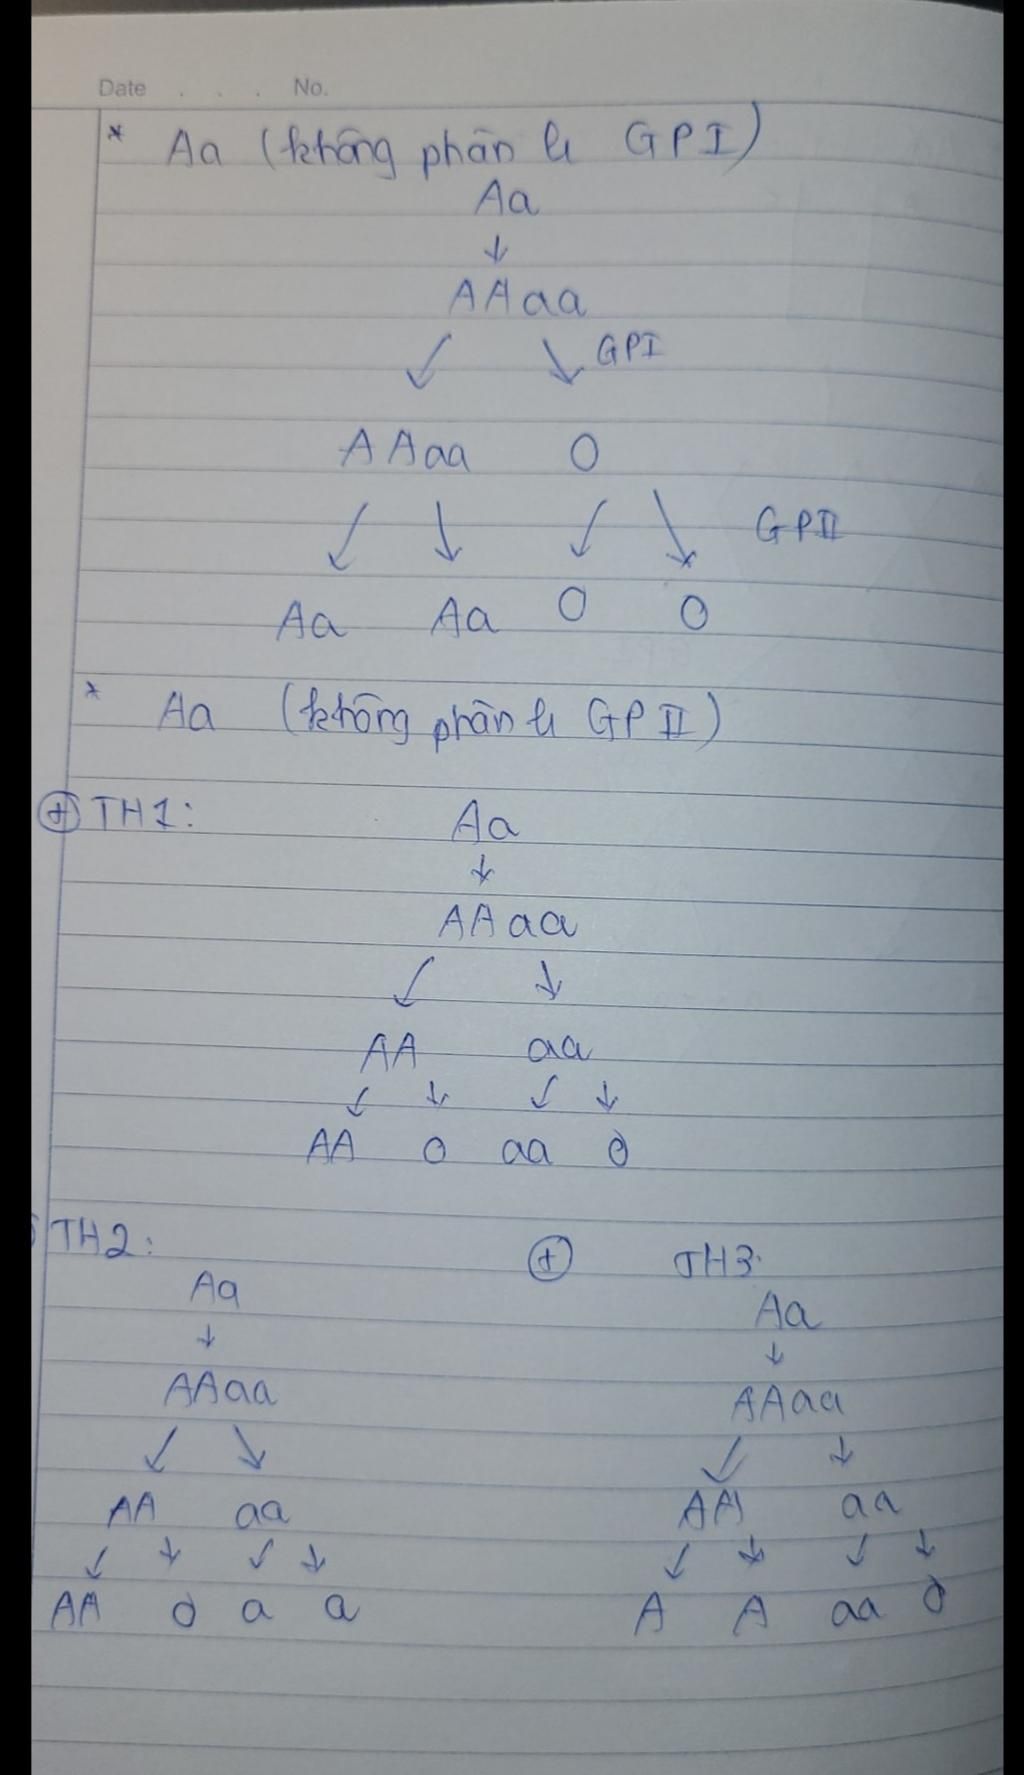 Date . . . No.
* Aa (không phân li GPI)
Aa
↓
AAaa
↙ ↘ GPI
AAaa O
↙ ↓ ↙ ↘ GPII
Aa Aa O O
* Aa (không phân li GPII)
⊕ TH1: Aa
↓
AAaa
↙ ↓
AA aa
↙ ↓ ↙ ↓
AA O aa O
TH2:
Aa
↓
AAaa
↙ ↘
AA aa
↙ ↓ ↙ ↓
AA O a a
⊕ TH3:
Aa
↓
AAaa
↙ ↓
AA aa
↙ ↓ ↙ ↓
A A aa O